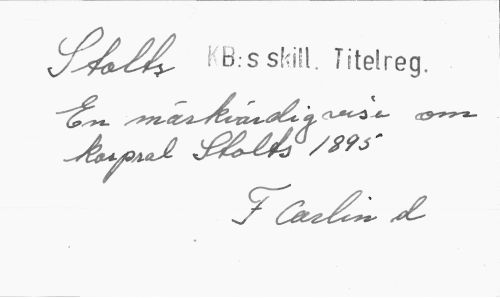 Stolts KB:s skill. Titelreg.
En märkvärdig visa om
korpral Stolts 1895
F Carlin d